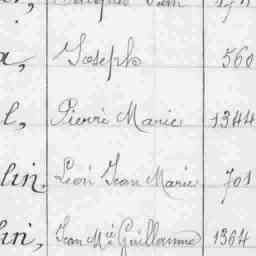 a, Joseph 560
l, Pierre Marie 1344
lin, Léon Jean Marie 701
lin, Jean Mie Guillaume 1364